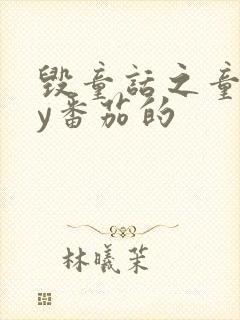 毁童话之童
y番茄的
林曦茉